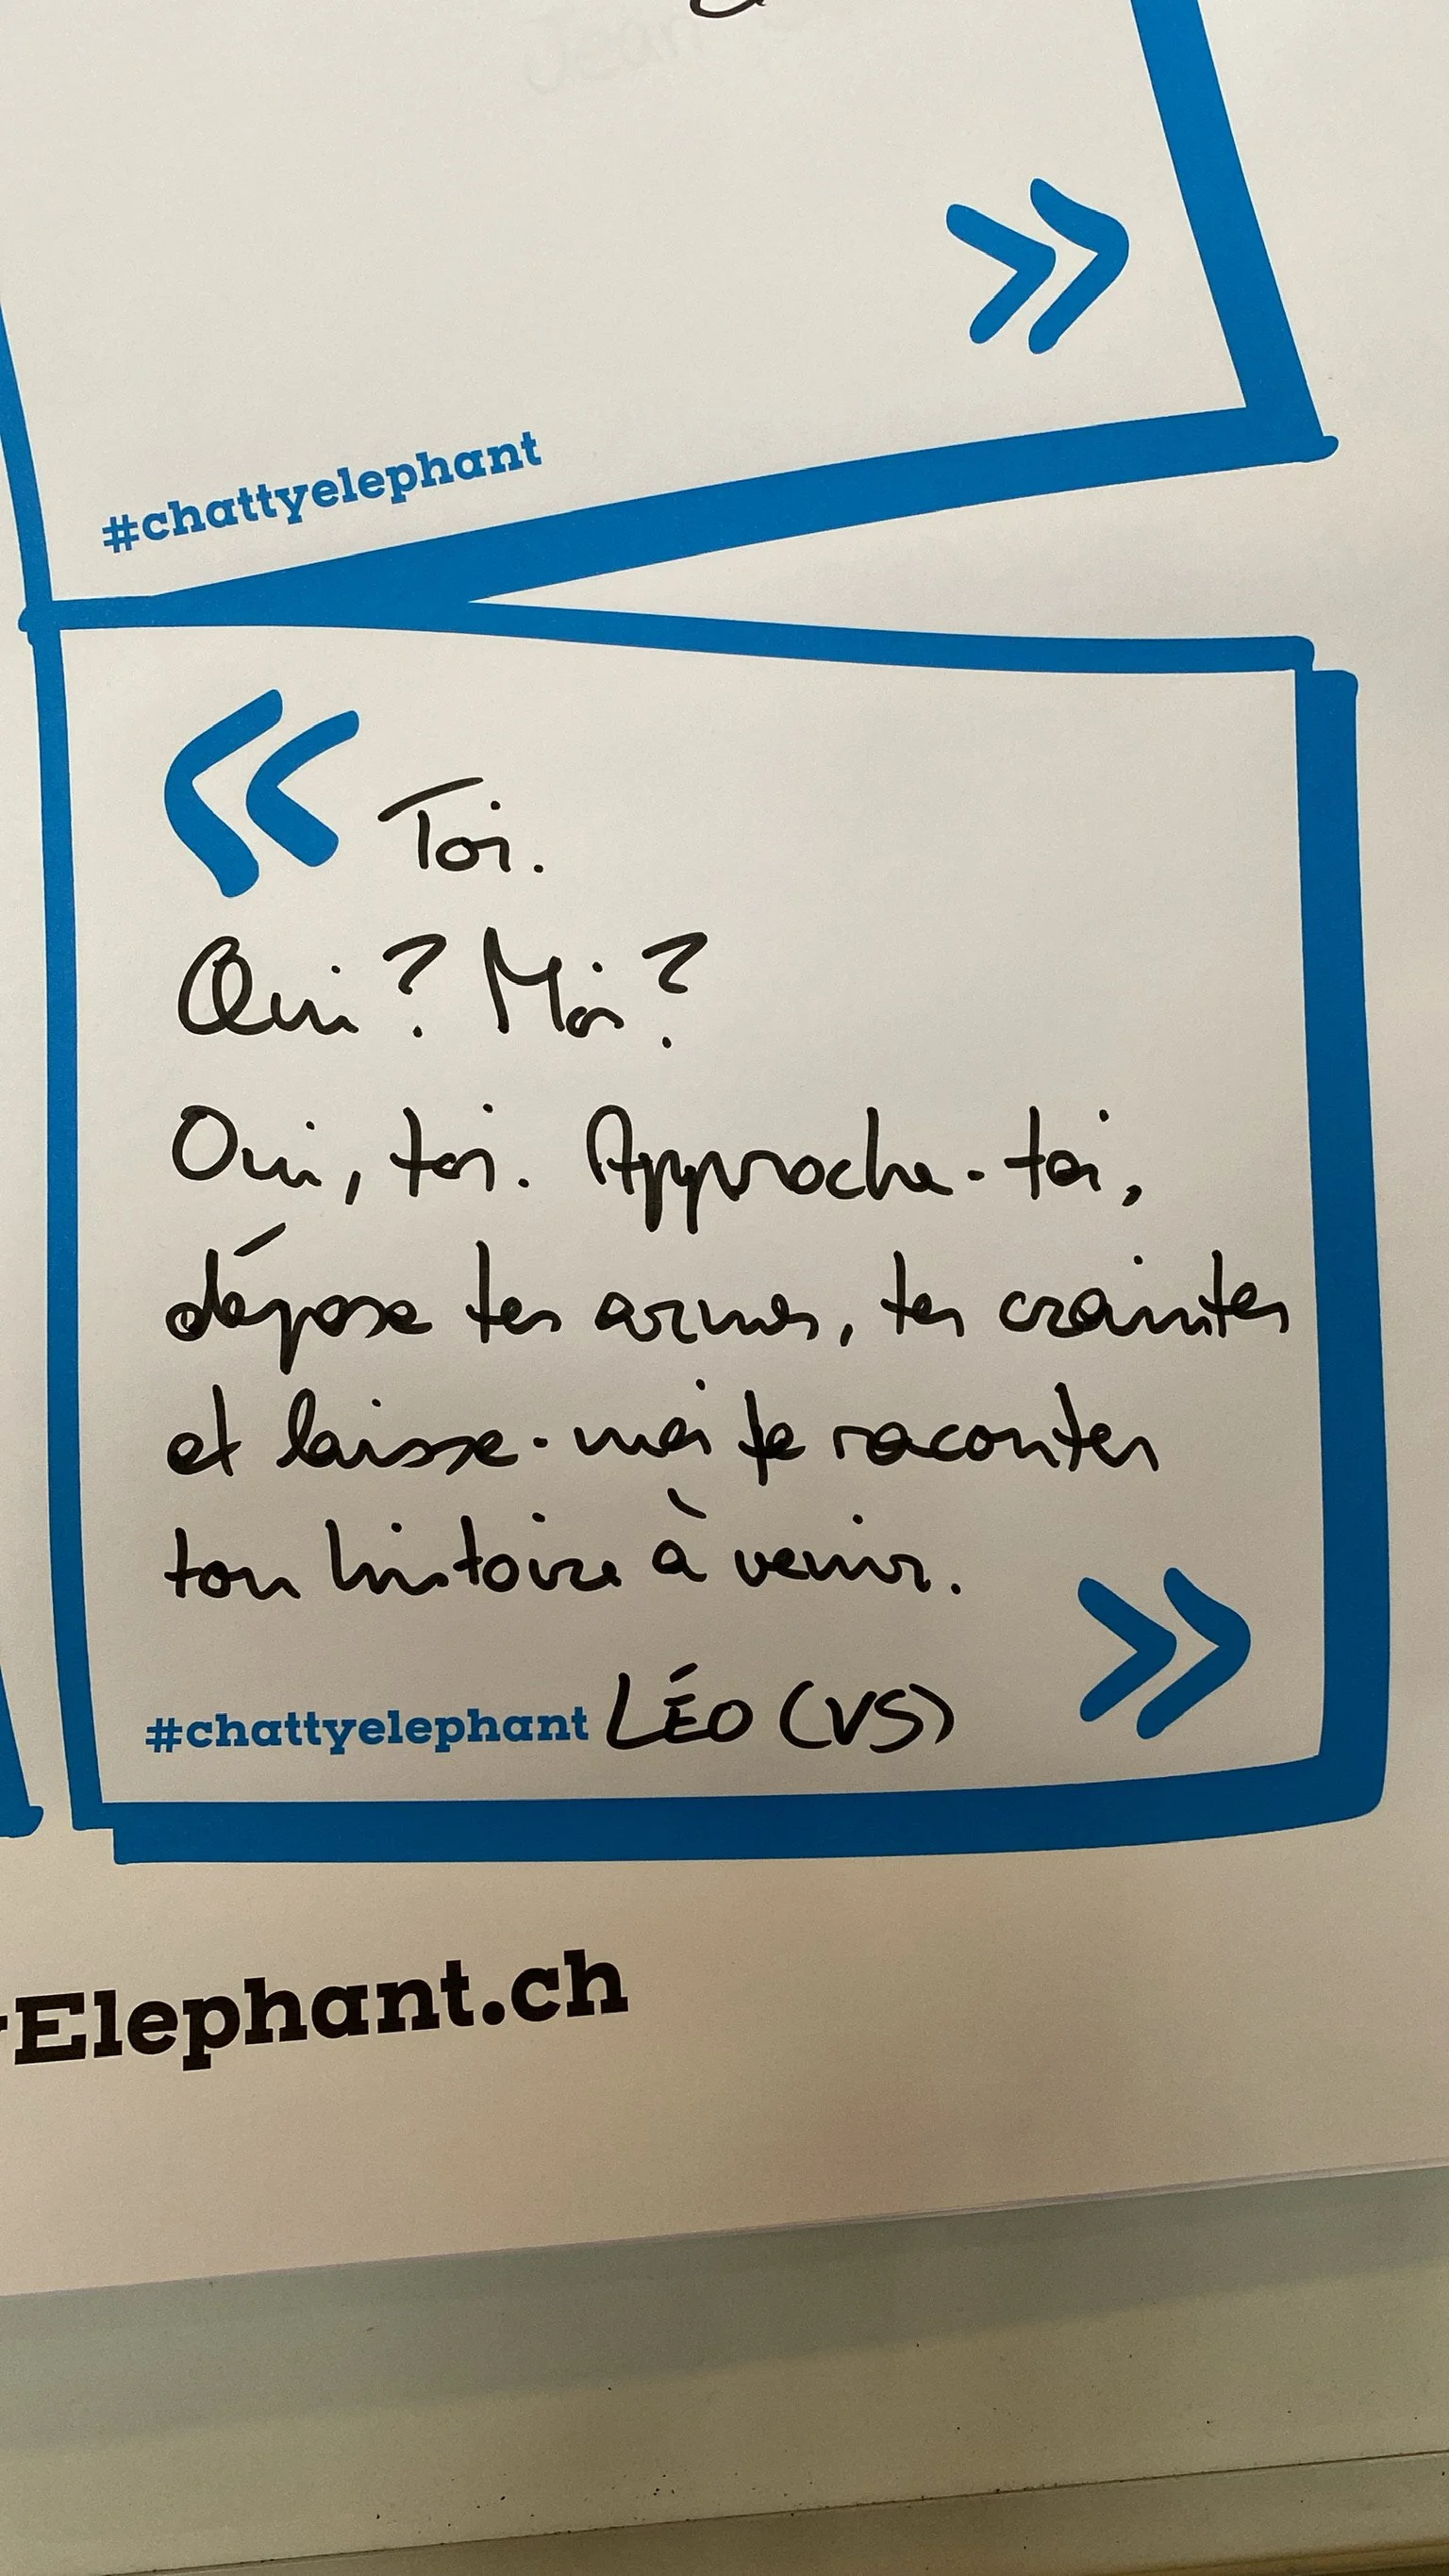 »
#chattyelephant
« Toi.
Qui ? Moi ?
Oui, toi. Approche-toi,
dépose tes armes, tes craintes
et laisse-moi te raconter
ton histoire à venir.
»
#chattyelephant LÉO (VS)
Elephant.ch